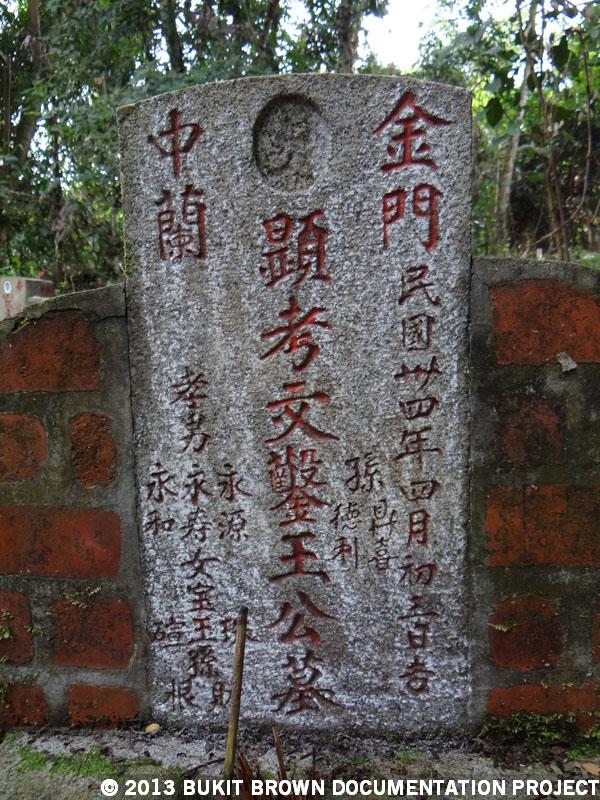 金門
民國卅四年四月初三日吉
孫 鼎喜
德利
顯考文鑿王公墓
永源 珠 財
孝男永寿女宝玉孫
永和 根
中蘭
© 2013 BUKIT BROWN DOCUMENTATION PROJECT